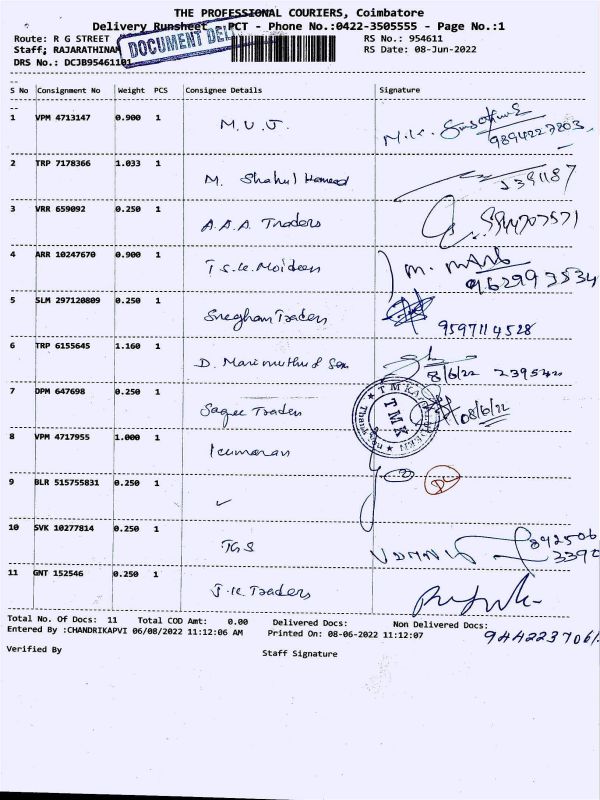 THE PROFESSIONAL COURIERS, Coimbatore
Delivery Runsheet - PCT - Phone No.:0422-3505555 - Page No.:1
Route: R G STREET
RS No.: 954611
Staff; RAJARATHINAM
RS Date: 08-Jun-2022
DOCUMENT DEL
DRS No.: DCJB95461101
S No Consignment No Weight PCS Consignee Details Signature
1 VPM 4713147 0.900 1 M.U.J.
9894227803
2 TRP 7178366 1.033 1 M. Shahul Hameed
2391187
3 VRR 659092 0.250 1 A.A.A. Traders
9944707571
4 ARR 10247670 0.900 1 T.S.K. Moideen
M. MANG
962993534
5 SLM 297120809 0.250 1 Snegham Traders
9597114528
6 TRP 6155645 1.160 1 D. Marimuthu & Son
8/6/22 239542
7 DPM 647698 0.250 1 Sagee Traders
TMK
08/6/22
8 VPM 4717955 1.000 1 Kumaran
9 BLR 515755831 0.250 1
10 SVK 10277814 0.250 1 TGS
892506
3390
11 GNT 152546 0.250 1 J.K. Traders
Total No. Of Docs: 11 Total COD Amt: 0.00 Delivered Docs: Non Delivered Docs:
Entered By :CHANDRIKAPVI 06/08/2022 11:12:06 AM Printed On: 08-06-2022 11:12:07
944223706
Verified By
Staff Signature